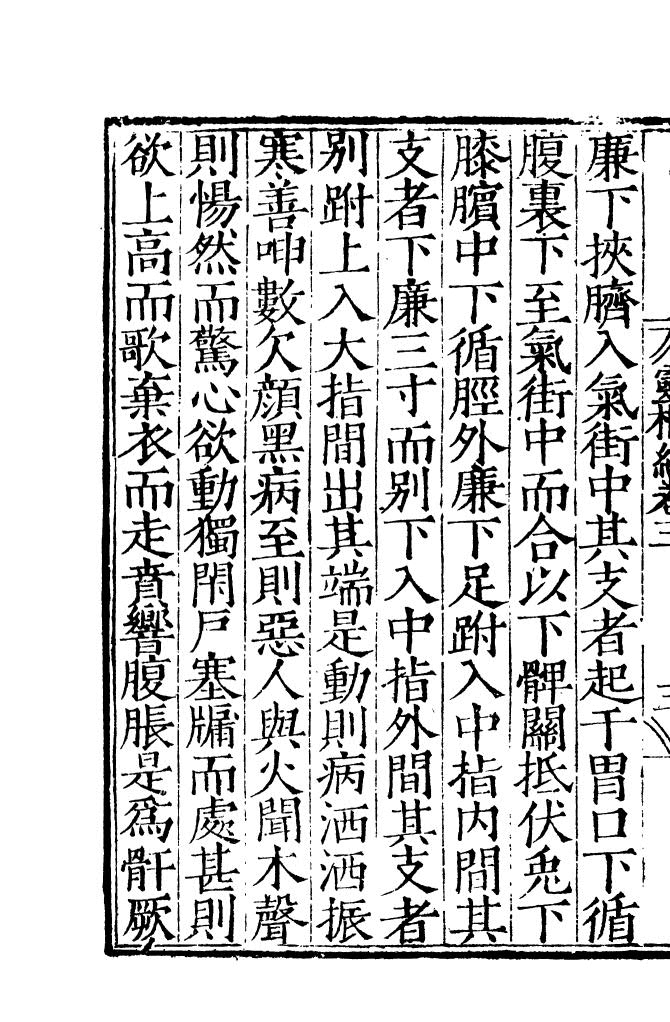 廉下挾臍入氣街中其支者起于胃口下循
腹裏下至氣街中而合以下髀關抵伏兎下
膝臏中下循脛外廉下足跗入中指内間其
支者下廉三寸而别下入中指外間其支者
别跗上入大指間出其端是動則病洒洒振
寒善呻數欠顔黑病至則惡人與火聞木聲
則惕然而驚心欲動獨閉戸塞牖而處甚則
欲上高而歌棄衣而走賁響腹脹是爲骭厥